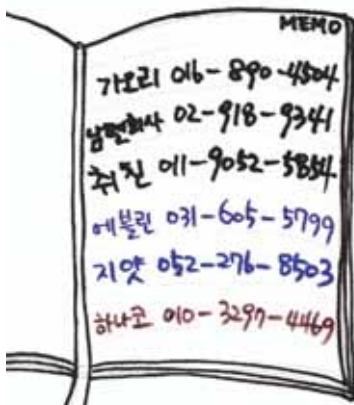 MEMO
가오리 016-890-4504
남편회사 02-918-9341
취친 011-9052-5854
에블린 031-605-5799
지얏 052-276-8503
하나코 010-3297-4469